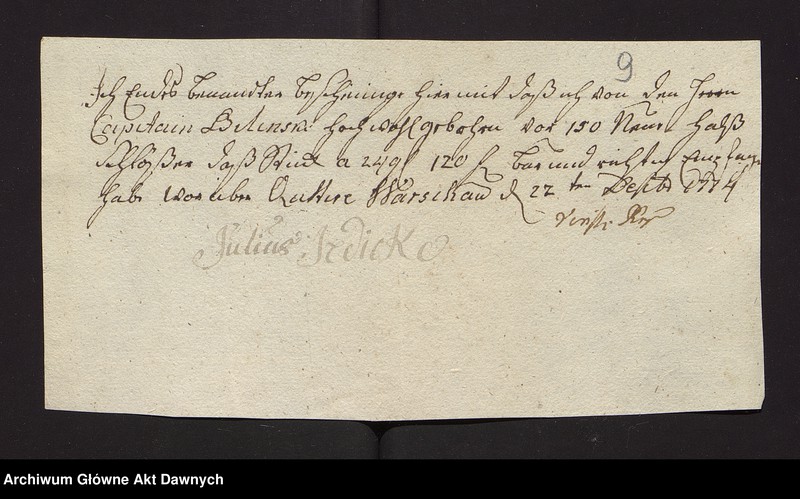 9
Ich Endes benandter bescheinige hiermit daß ich von den Herrn
Capitain Bilinski hoch wohl gebohren vor 150 Neue halß
schlößer daß Stück a 24 gl 120 fl bar und richtig Empfangen
habe worüber Quittire Warschau d 22 ten 1774
Julius
Archiwum Główne Akt Dawnych